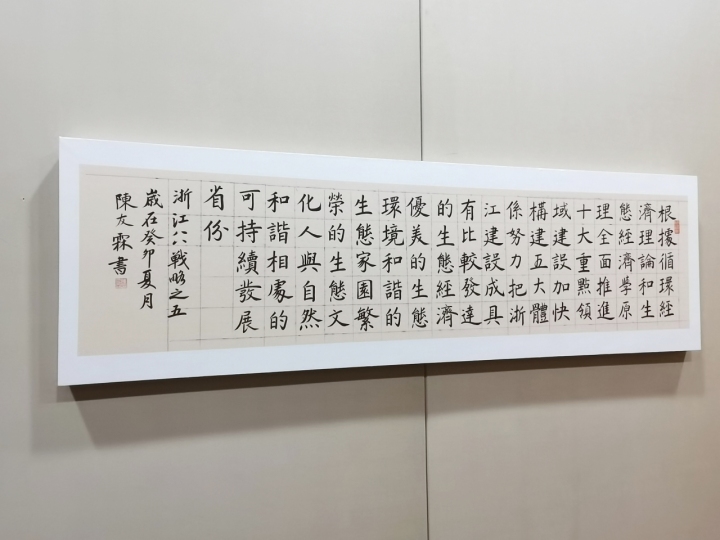 根據循環經
濟理論和生
態經濟學原
理全面推進
十大重點領
域建設加快
構建五大體
係努力把浙
江建設成具
有比較發達
的生態經濟
優美的生態
環境和諧的
生態家園繁
榮的生態文
化人與自然
和諧相處的
可持續發展
省份
浙江八八戰略之五
歲在癸卯夏月
陳友霖書